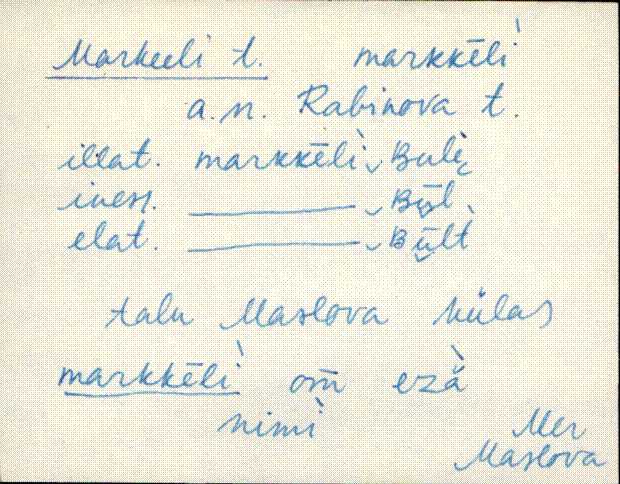 Markeeli t. markkēlì
a.n. Rabinova t.
illat. markkēlì Bulì
iness.
elat.
talu Maslova külas
markkēlì om̄ ezä̀
nimì
Mer
Maslova